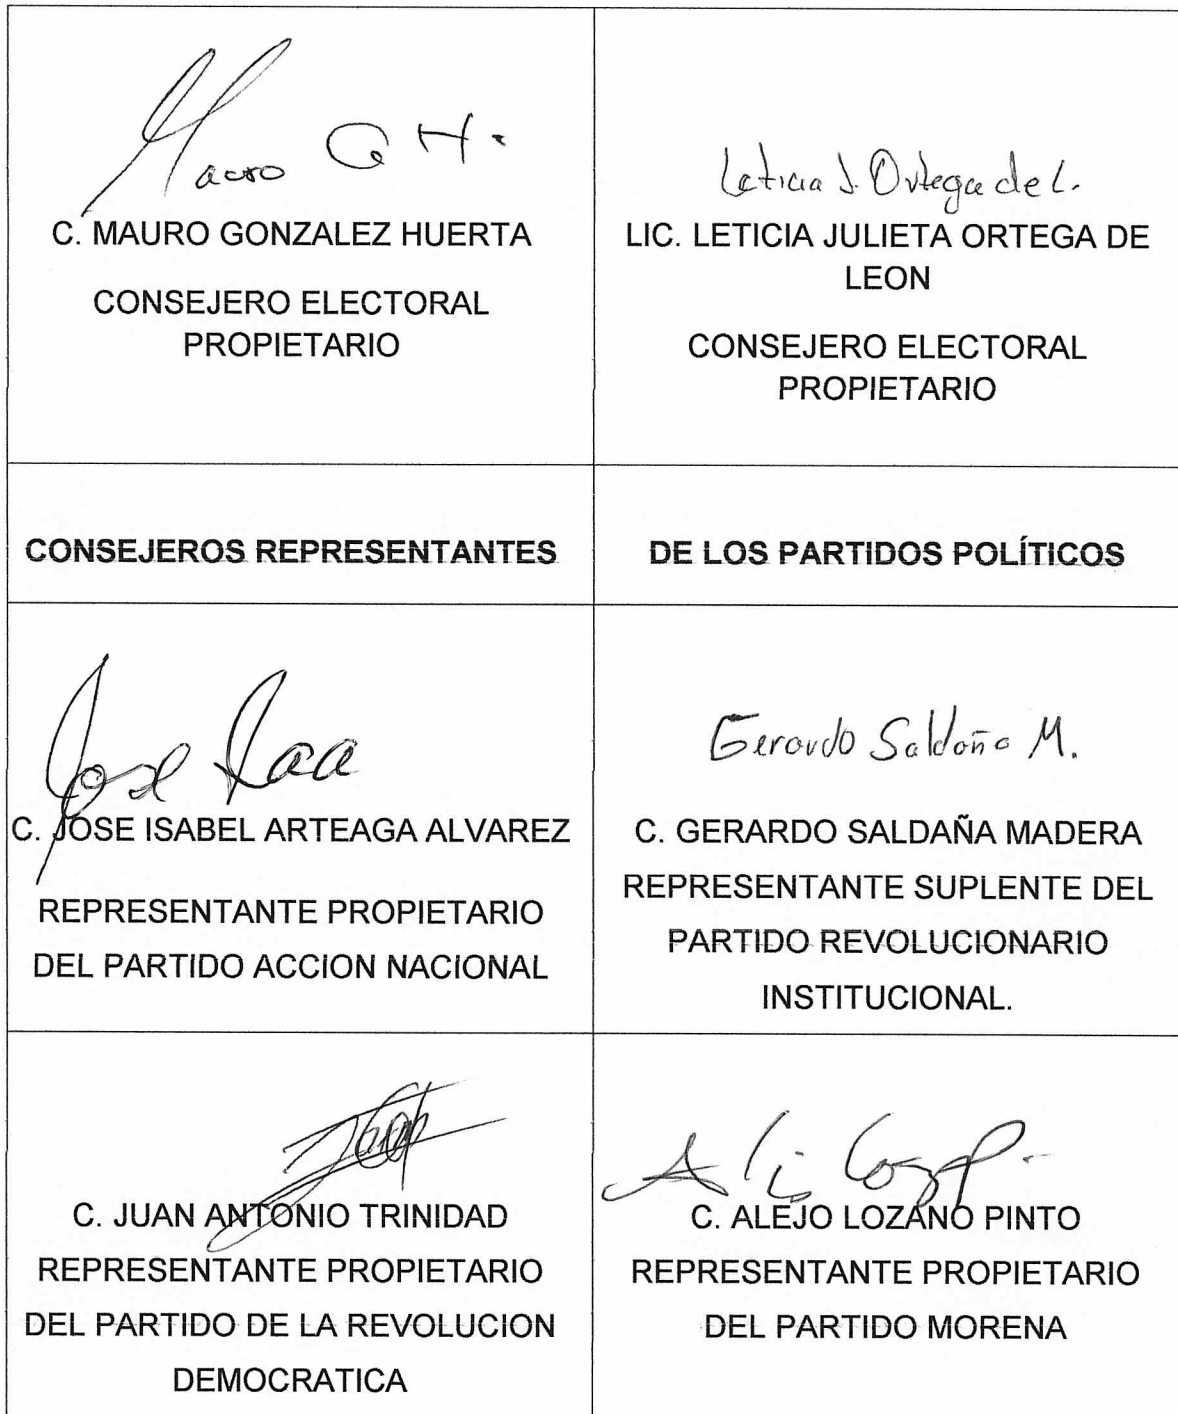 Mauro G H.
C. MAURO GONZALEZ HUERTA
CONSEJERO ELECTORAL
PROPIETARIO
Leticia J. Ortega de L.
LIC. LETICIA JULIETA ORTEGA DE
LEON
CONSEJERO ELECTORAL
PROPIETARIO
CONSEJEROS REPRESENTANTES
DE LOS PARTIDOS POLÍTICOS
Jose
C. JOSE ISABEL ARTEAGA ALVAREZ
REPRESENTANTE PROPIETARIO
DEL PARTIDO ACCION NACIONAL
Gerardo Saldaña M.
C. GERARDO SALDAÑA MADERA
REPRESENTANTE SUPLENTE DEL
PARTIDO REVOLUCIONARIO
INSTITUCIONAL.
C. JUAN ANTONIO TRINIDAD
REPRESENTANTE PROPIETARIO
DEL PARTIDO DE LA REVOLUCION
DEMOCRATICA
C. ALEJO LOZANO PINTO
REPRESENTANTE PROPIETARIO
DEL PARTIDO MORENA